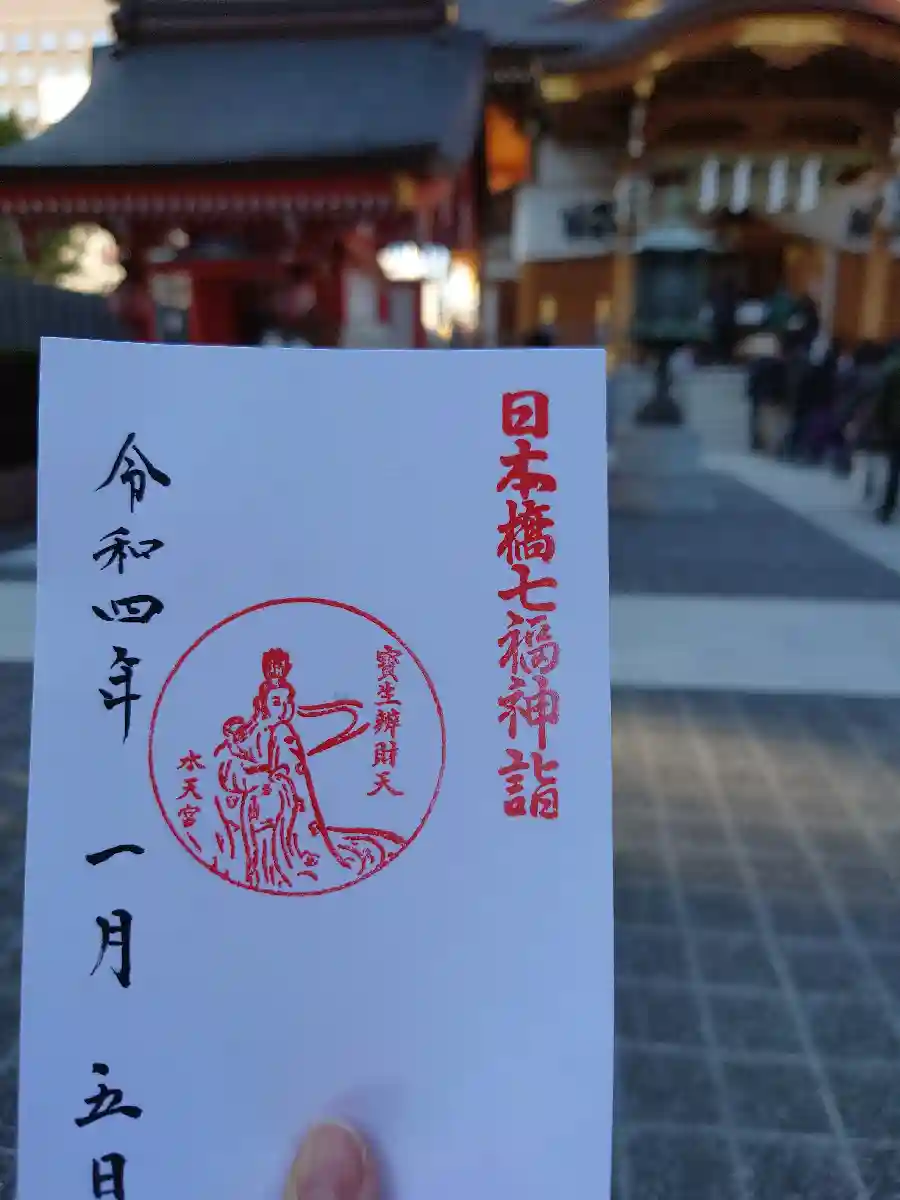 日本橋七福神詣
寶生辨財天
水天宮
令和四年 一月 五日